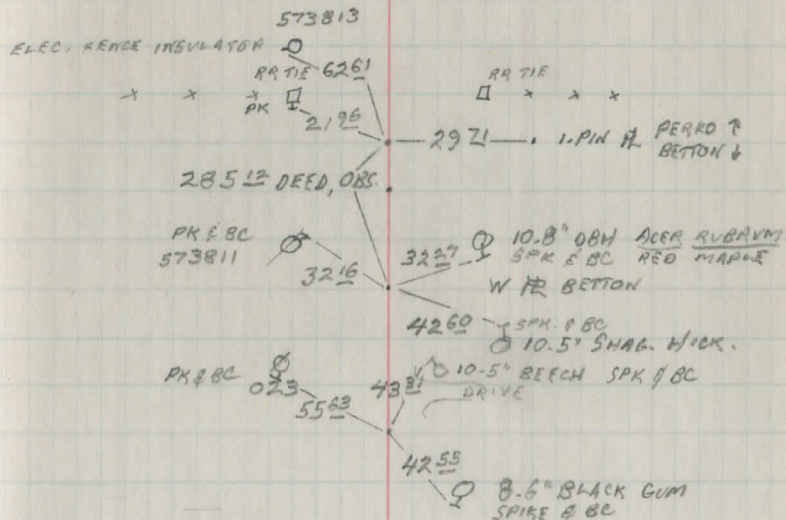 573813
ELEC. FENCE INSULATOR
6261
RR TIE
RR TIE
PK
2196
2971
I. PIN PL PERKO ↑
BETTON ↓
28512 DEED, OBS.
PK & BC
573811
3216
3227
10.8" DBH ACER RUBRUM
SPK & BC RED MAPLE
W PL BETTON
4260
SPK. & BC
10.5" SHAG. HICK.
PK & BC
023
5563
4331
10.5" BEECH SPK & BC
DRIVE
4255
8.6" BLACK GUM
SPIKE & BC